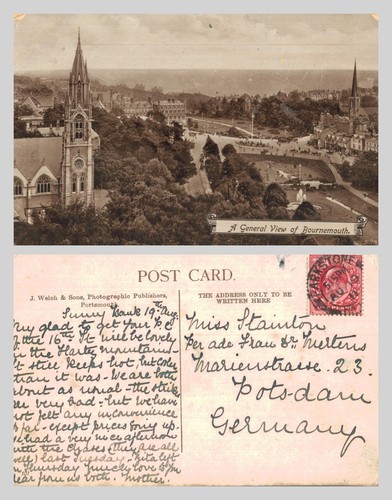 A General View of Bournemouth.
POST CARD.
J. Welch & Sons, Photographic Publishers,
Portsmouth.
THE ADDRESS ONLY TO BE
WRITTEN HERE
PARKSTONE
Sunny Bank 19th Aug
glad to get your P.C
of the 16th It will be lovely
in the Hartz mountains
it still keeps hot, but
than it was - We are both
about as usual - the strike
very bad - but we have
not felt any inconvenience
so far - except prices going up.
had a very nice afternoon
with the Clydes (they are all
last Tuesday. Rita left
Thursday much love
hear from us both. Mother.
Miss Stainton
Per ade Frau Dr Mertens
Marienstrasse. 23.
Potsdam
Germany